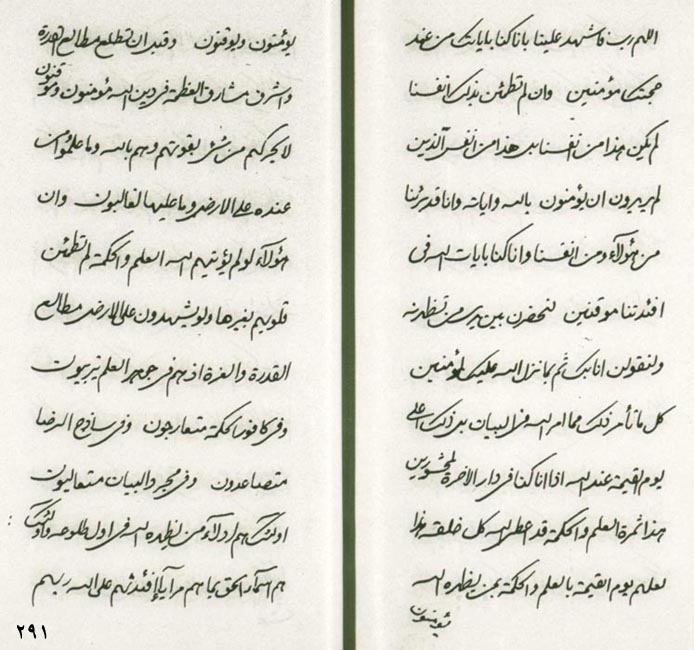 اللهم رب فاشهد علينا بانا كنا بايات من عند
حجتك مؤمنين وان لم تطمئن بذلك انفسنا
لم يكن هذا من انفسنا بل هذا من انفس الذين
لم يريدون ان يؤمنون بالله واياته وانا قد برئنا
من هؤلاء ومن انفسنا وانا كنا بايات الله في
افئدتنا موقنين لنحضرن بين يدي من تظهرنه
ولنقولن انا بك ثم بما نزل الله عليك لمؤمنين
كل ما تأمر ذلك مما امر الله في البيان بل ذلك اعلى
يوم القيمة عند الله اذا انا كنا في دار الآخرة لمحشورين
هذا ثمرة العلم والحكمة قد اعطى الله كل خلقه هذا
لعلهم يوم القيمة بالعلم والحكمة بمن يظهره الله
يؤمنون
يؤمنون ويوقنون وقبل ان تطلع مطالع القدرة
واشرق مشارق العظمة في دين الله مؤمنون وموقنون
لا يحركهم من شيء بقوتهم وهم بالله وما علموا من
عنده على الارض وما عليها لغالبون وان
هؤلاء لو لم يؤتيهم الله العلم والحكمة لم تطمئن
قلوبهم بغيرها ولو يشهدون على الارض مطالع
القدرة والعزة اذ هم في جوهر العلم يربيون
وفي كافور الحكمة متعارجون وفي ساذج الرضا
متصاعدون وفي مجرد البيان متعاليون
اولئك هم ادلاء من يظهره الله في اول طلوعه واولئك
هم اسماء الحق بما هم مرايا افئدتهم على الله ربهم
٢٩١